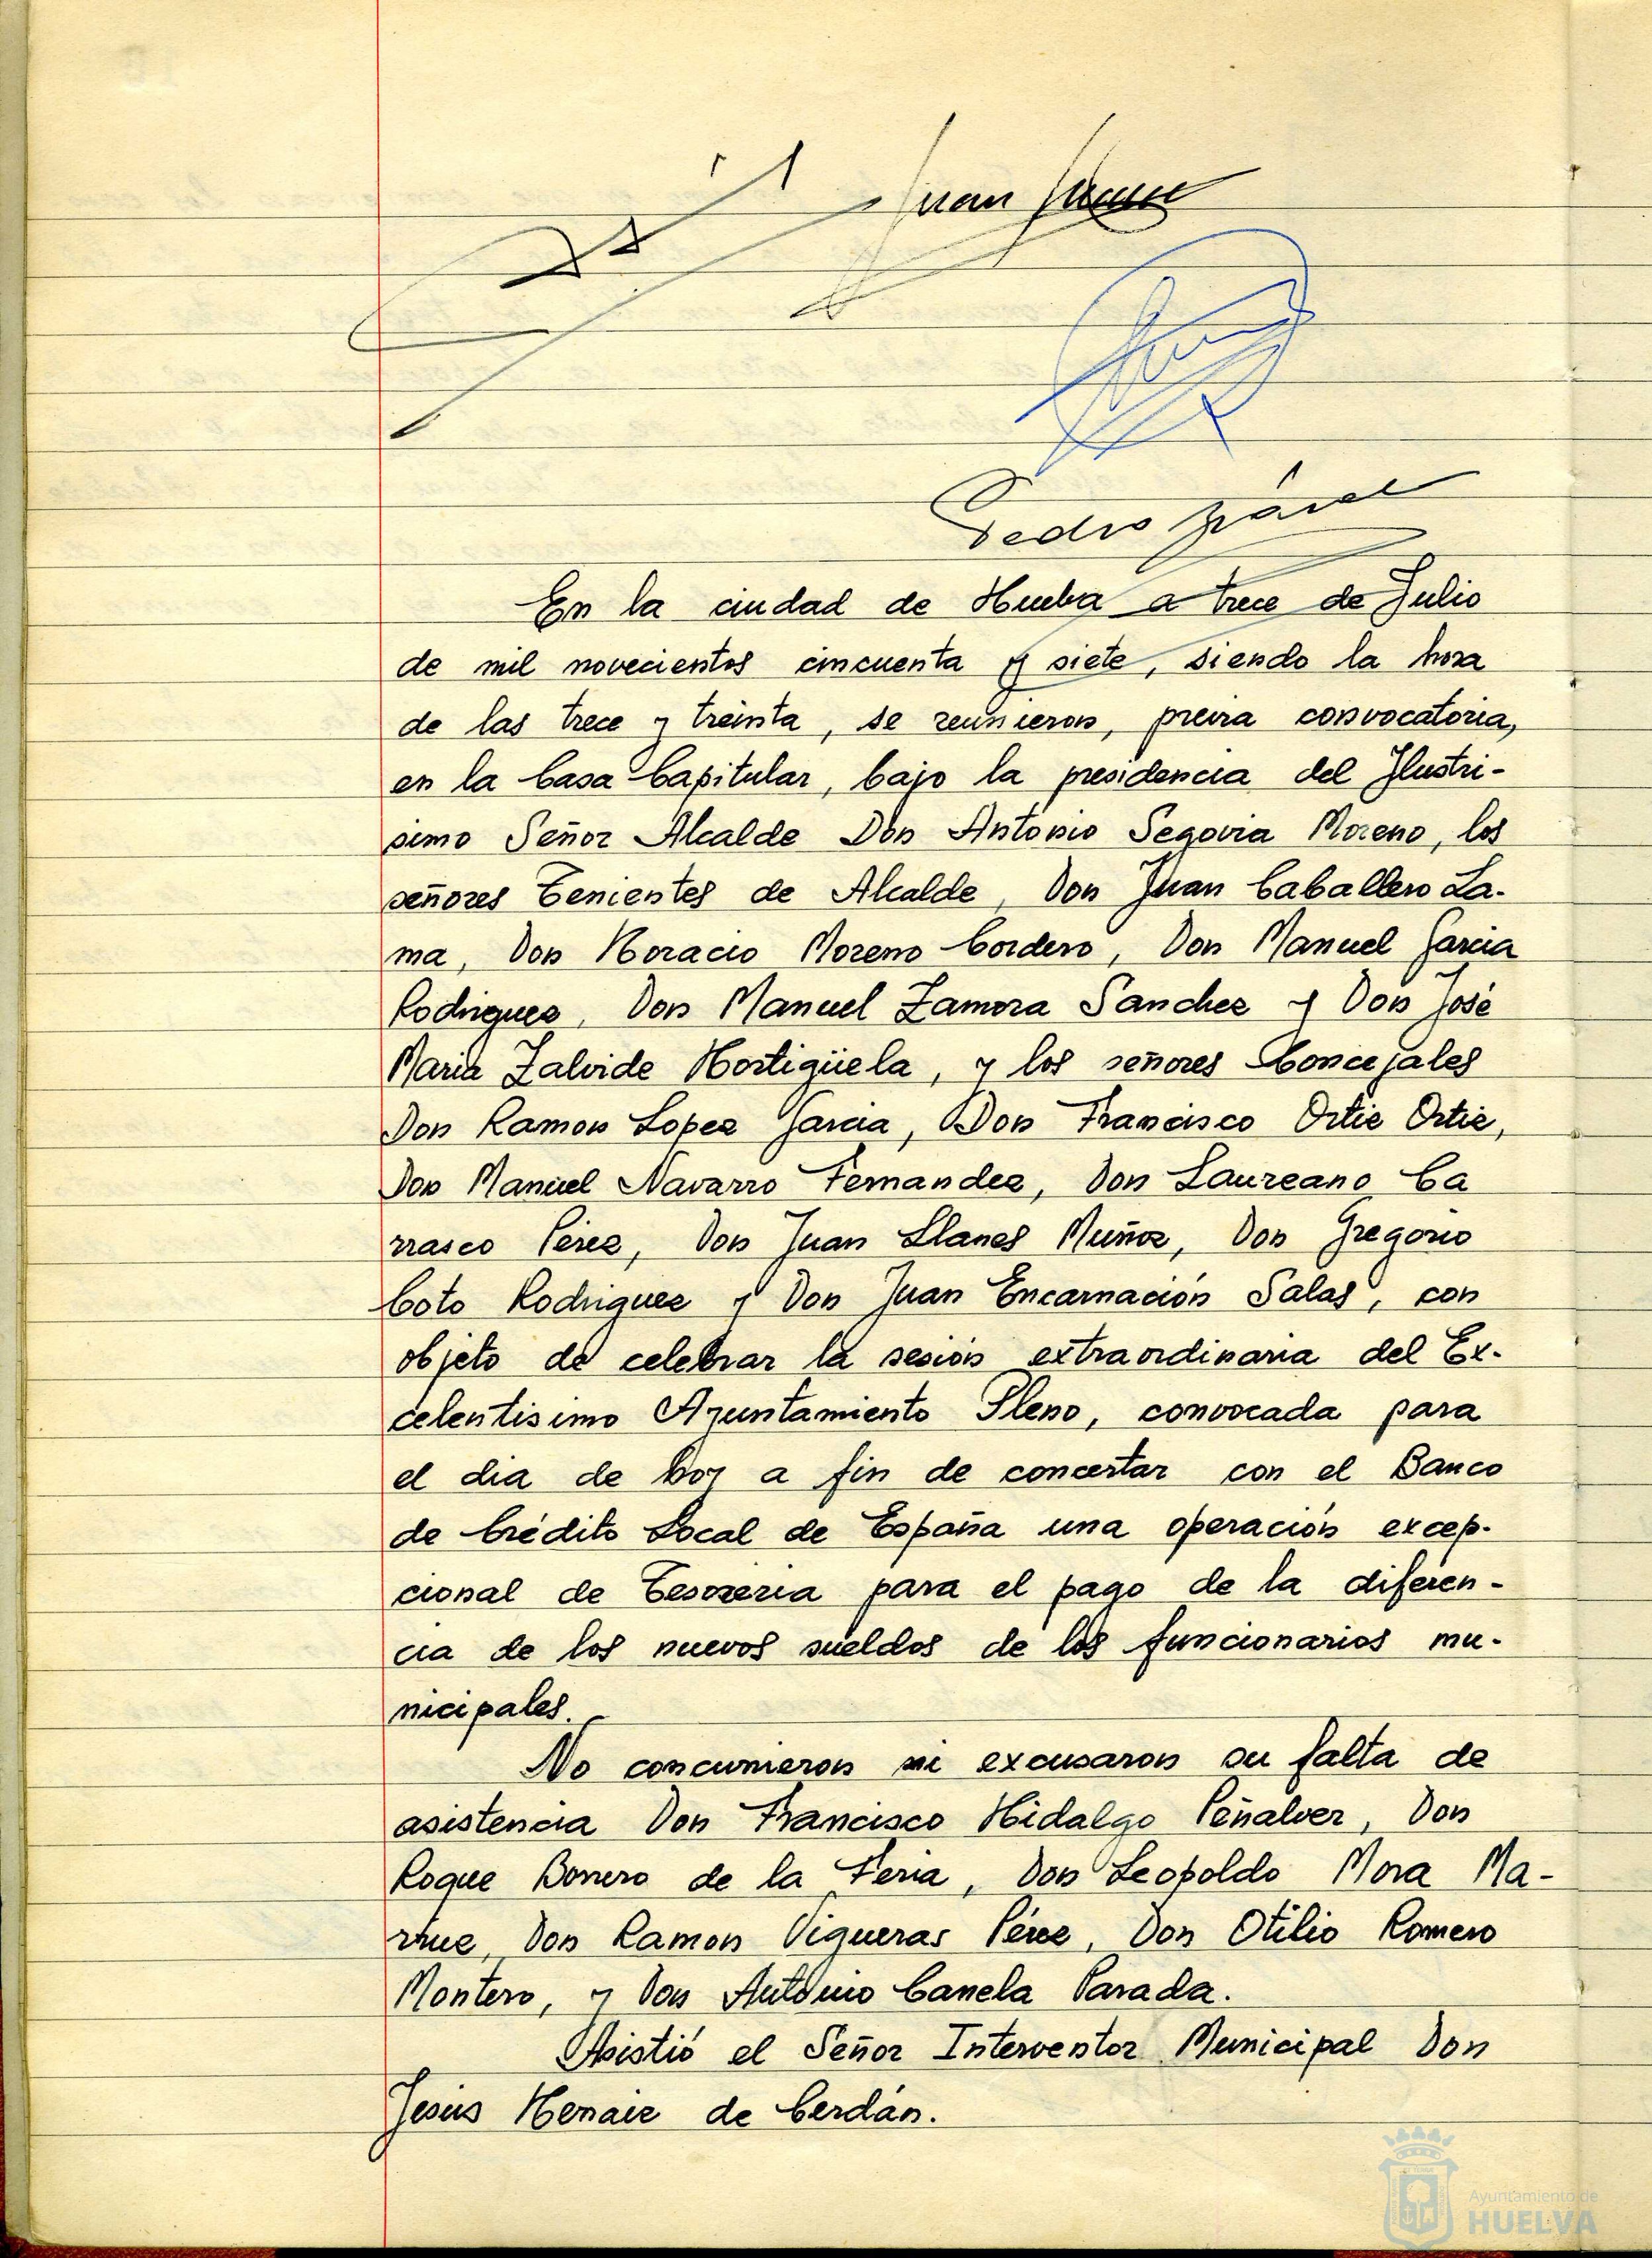 Juan
Pedro
En la ciudad de Huelva a trece de Julio
de mil novecientos cincuenta y siete, siendo la hora
de las trece y treinta, se reunieron, previa convocatoria,
en la Casa Capitular, bajo la presidencia del Ilustri-
simo Señor Alcalde Don Antonio Segovia Moreno, los
señores Tenientes de Alcalde, Don Juan Caballero La-
ma, Don Horacio Moreno Cordero, Don Manuel Garcia
Rodriguez, Don Manuel Zamora Sanchez y Don José
Maria Zalvide Hortigüela, y los señores Concejales
Don Ramon Lopez Garcia, Don Francisco Ortiz Ortiz,
Don Manuel Navarro Fernandez, Don Laureano Ca
rrasco Pérez, Don Juan Llanes Muñoz, Don Gregorio
Coto Rodriguez y Don Juan Encarnación Salas, con
objeto de celebrar la sesión extraordinaria del Ex-
celentisimo Ayuntamiento Pleno, convocada para
el dia de hoy a fin de concertar con el Banco
de Crédito Local de España una operación excep-
cional de Tesoreria para el pago de la diferen-
cia de los nuevos sueldos de los funcionarios mu-
nicipales.
No concurrieron ni excusaron su falta de
asistencia Don Francisco Hidalgo Peñalver, Don
Roque Borrero de la Feria, Don Leopoldo Mora Ma-
rruz, Don Ramon Vigueras Pérez, Don Otilio Romero
Montero, y Don Antonio Canela Parada.
Asistió el Señor Interventor Municipal Don
Jesús Henaiz de Cerdán.
Ayuntamiento de
HUELVA